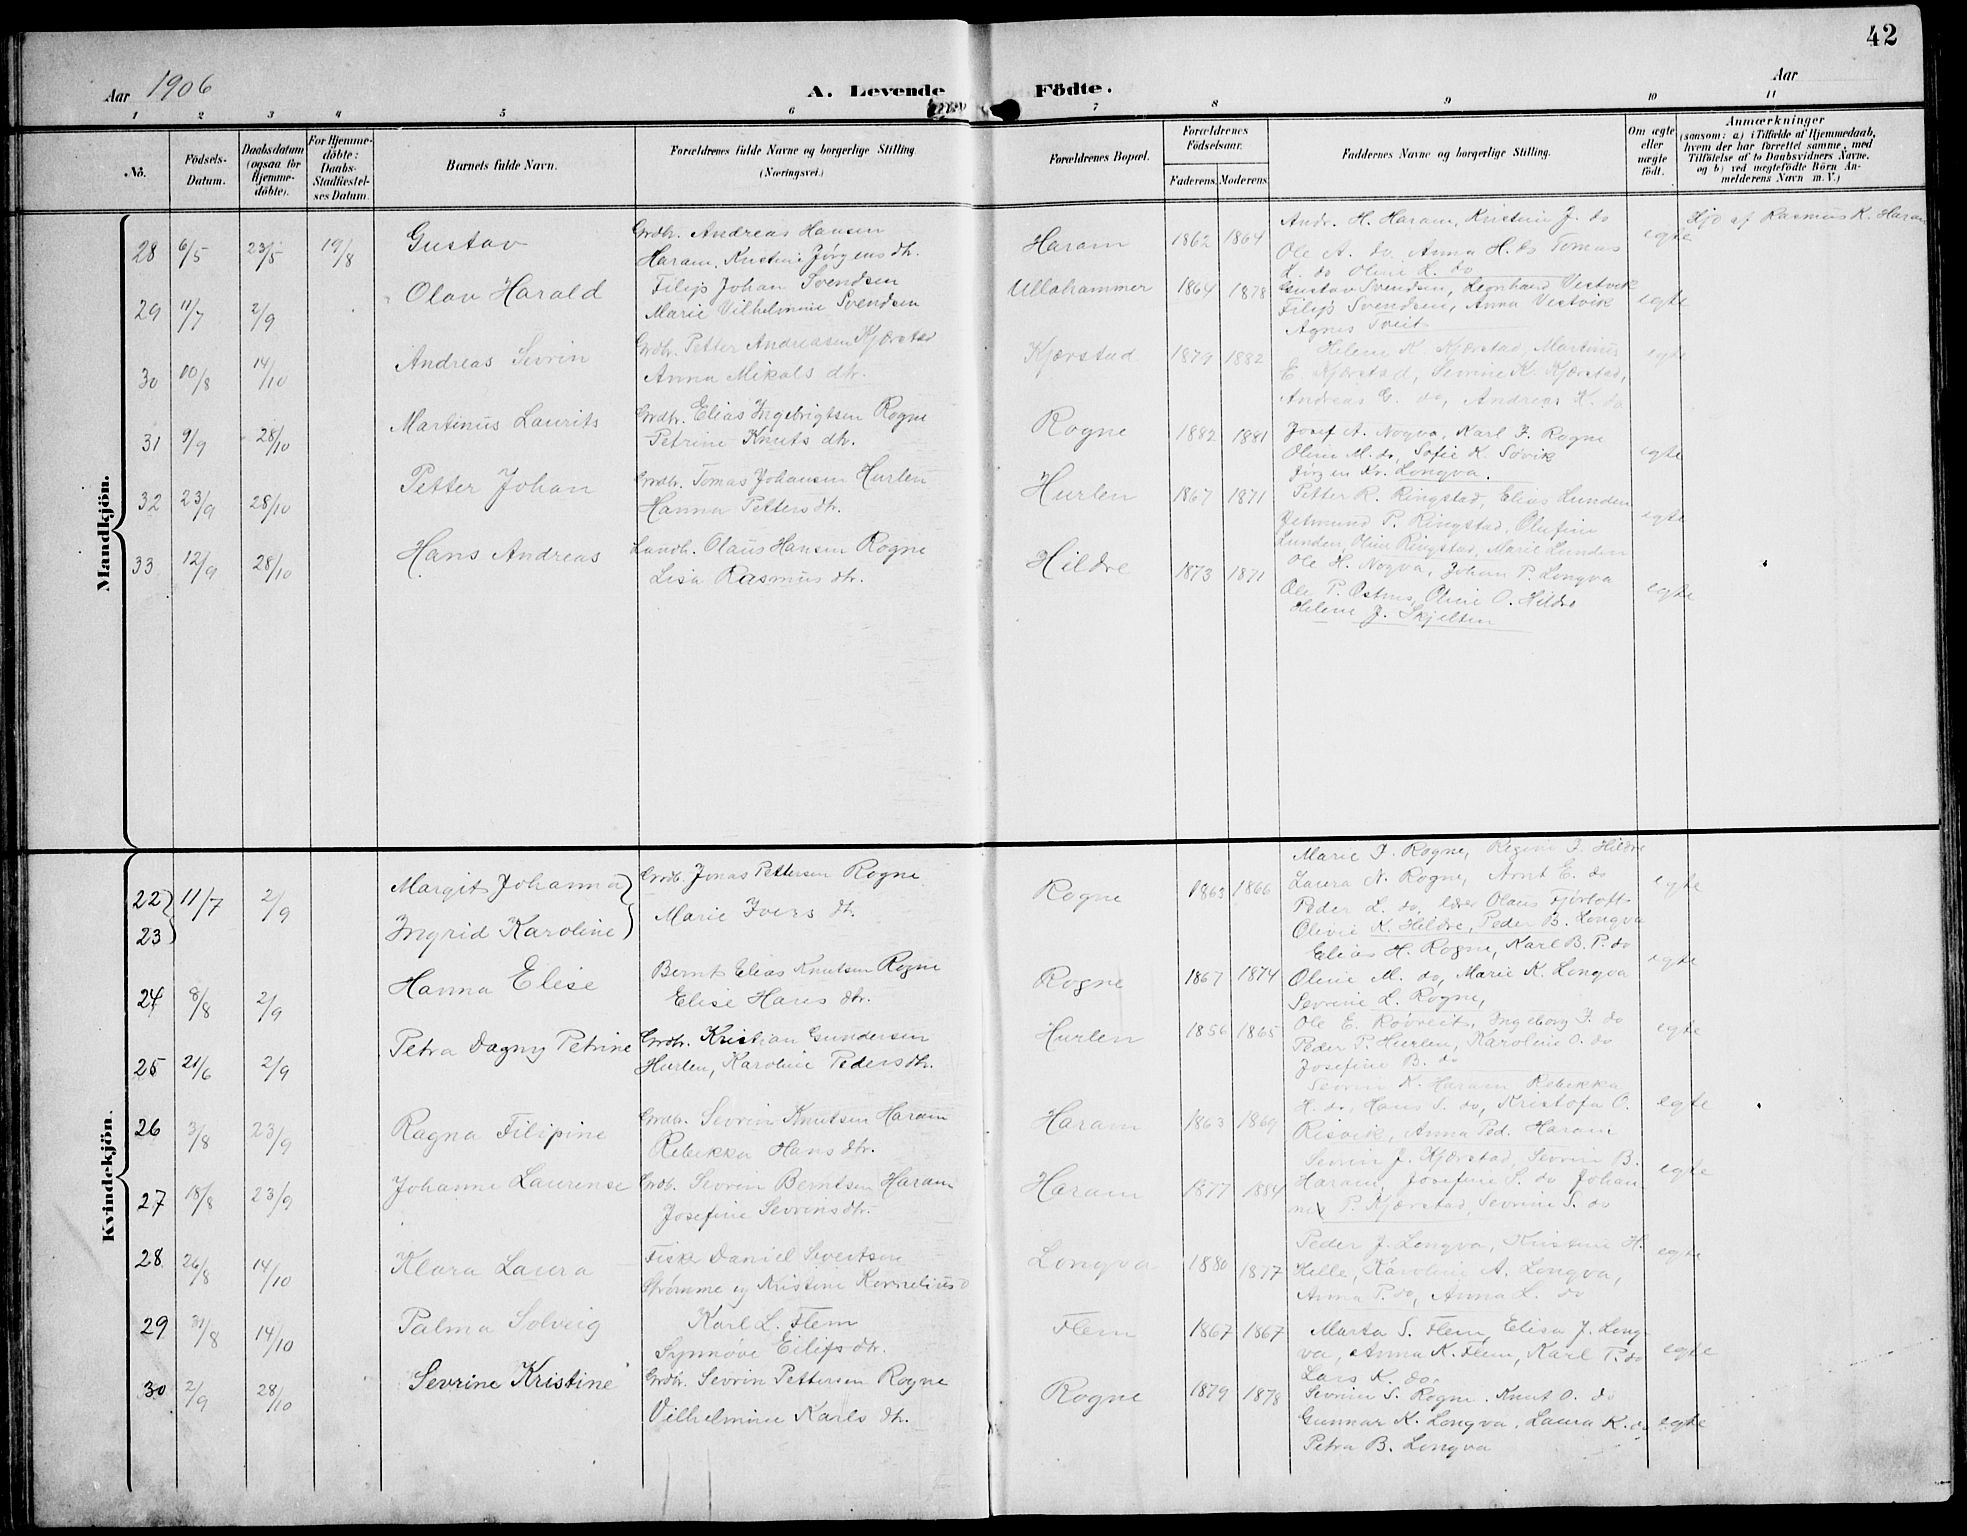 42
Aar 1906
A. Levende Födte.
Aar
1 2 3 4 5 6 7 8 9 10 11
No.
Födsels-Datum.
Daabsdatum (ogsaa för Hjemme-döbte).
For Hjemme-döbte: Daabs-Stadfæstel-ses Datum.
Barnets fulde Navn.
Forældrenes fulde Navne og borgerlige Stilling (Næringsvei.)
Forældrenes Bopæl.
Forældrenes Födselsaar.
Faderens. Moderens.
Faddernes Navne og borgerlige Stilling.
Om ægte eller uægte födt.
Anmærkninger
(saasom: a) i Tilfælde af Hjemmedaab,
hvem der har forrettet samme, med
Tilföielse af to Daabsvidners Navne,
og b) ved uægtefödte Börn An-
melderens Navn m. V.)
Mandkjön.
28 6/5 23/5 19/8 Gustav
Grdbr. Andreas Hansen
Haram, Kristine Jørgensdtr.
Haram 1862 1864
Andr. H. Haram, Kristine J. do
Ole A. do, Anna H. do Tomas
K. do Oline K. do
egte
Hjd af Rasmus K. Haram
29 11/7 2/9 Olav Harald
Filip Johan Svendsen
Marie Vilhelmine Svendsen
Ullahammer 1864 1878
Gustav Svendsen, Leonhard Vestvik
Filip Svendsen, Anna Vestvik
Agnes Tveit
egte
30 10/8 14/10 Andreas Sevrin
Grdbr. Petter Andreasen Kjærstad
Anna Mikals dtr.
Kjærstad 1879 1882
Helene K. Kjærstad, Martinus
E. Kjærstad, Sevrine K. Kjærstad,
Andreas E. do, Andreas K. do
egte
31 9/9 28/10 Martinus Laurits
Grdbr. Elias Ingebrigtsen Rogne
Petrine Knuts dtr.
Rogne 1882 1881
Josef A. Nogva, Karl J. Rogne
Oline M. do, Sofie K. Søvik
Jørgen Longva.
egte
32 23/9 28/10 Petter Johan
Grdbr. Tomas Johansen Hurlen
Hanna Petters dtr.
Hurlen 1867 1871
Petter R. Ringstad, Elias Lunden
Jetmund P. Ringstad, Olufine
Lunden, Oline Ringstad, Marie Lunden
egte
33 12/9 28/10 Hans Andreas
Landh. Olaus Hansen Rogne
Lisa Rasmus dtr.
Hildre 1873 1871
Ole H. Nogva, Johan P. Longva
Ole P. Østnes, Oline O. Hildre
Helene J. Skjelten
egte
Kvindekjön.
22 11/7 2/9 Margit Johanna
23 Ingrid Karoline
Grdb. Jonas Pettersen Rogne
Marie Ivers dtr.
Rogne 1863 1866
Marie J. Rogne, Regine J. Hildre
Laura N. Rogne, Arnt E. do
Peder L. do, lærer Olaus Fjørtoft
Olivie K. Hildre, Peder B. Longva
egte
24 8/8 2/9 Hanna Elise
Bernt Elias Knutsen Rogne
Elise Hans dtr.
Rogne 1867 1874
Elias H. Rogne, Karl B. P. do
Oline M. do, Marie K. Longva
Sevrine L. Rogne,
egte
25 21/6 2/9 Petra Dagny Petrine
Grdbr. Kristian Gundersen
Hurlen, Karoline Pedersdtr.
Hurlen 1856 1865
Ole E. Røvreit, Ingeborg J. do
Peder P. Hurlen, Karoline O. do
Josefine B. do
egte
26 3/8 23/9 Ragna Filipine
Grdbr. Sevrin Knutsen Haram
Rebekka Hans dtr.
Haram 1863 1869
Sevrin K. Haram, Rebekka
H. do, Hans S. do, Kristofa O.
Risvik, Anna Ped. Haram
egte
27 18/8 23/9 Johanne Laurense
Grdb. Sevrin Berntsen Haram
Josefine Sevrinsdtr.
Haram 1877 1884
Sevrin J. Kjærstad, Sevrin B.
Haram, Josefine S. do Johan-
nes P. Kjærstad, Sevrine S. do
egte
28 26/8 14/10 Klara Laura
Fisker Daniel Sivertsen
Strømme og Kristine Kornelius d
Longva 1880 1877
Peder J. Longva, Kristine H.
Helle, Karoline A. Longva,
Anna P. do, Anna L. do
egte
29 31/8 14/10 Palma Solveig
Karl L. Flem
Synnøve Eilifs dtr.
Flem 1867 1867
Marta S. Flem, Elisa J. Long-
va, Anna K. Flem, Karl P. do
Lars K. do.
egte
30 2/9 28/10 Sevrine Kristine
Grdbr. Sevrin Pettersen Rogne
Vilhelmine Karls dtr.
Rogne 1879 1878
Sevrin S. Rogne, Knut O. do
Gunnar K. Longva, Laura K. do
Petra B. Longva
egte